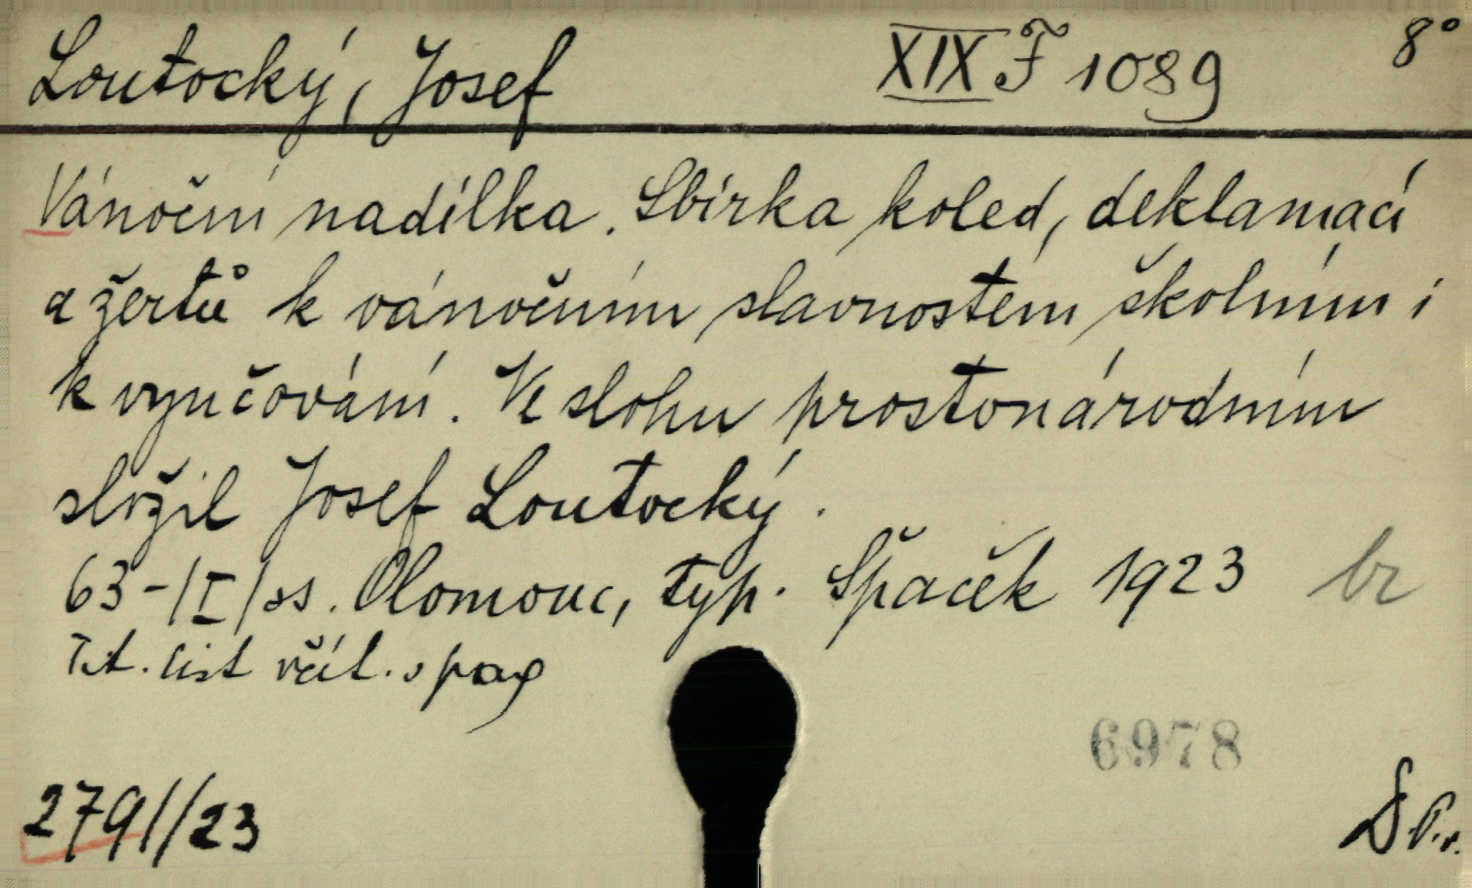 Loutocký, Josef XIX F 1089 8°
Vánoční nadílka. Sbírka koled, deklamací
a žertů k vánočním slavnostem školním i
k vyučování. Ve slohu prostonárodním
složil Josef Loutocký.
63-/I/ss. Olomouc, typ. Špaček 1923 br
Tit. list včít. v pag
6978
2791//23